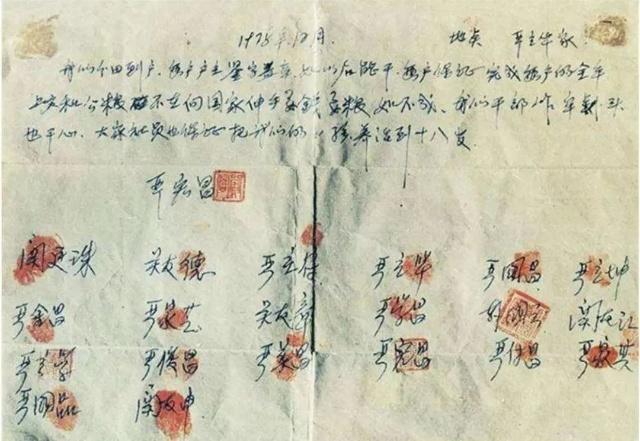 1978年12月. 地点 严立华家
我们分田到户,每户户主签字盖章,如以后能干,每户保证完成每户的全年
上交和公粮 不在向国家伸手要钱要粮 如不成,我们干部作牢刹头
也干心,大家社员也保证把我们的小孩养活到十八岁
严宏昌
关廷珠 关友德 严立符 严立华 严国昌 严立坤
严金昌 严家芝 关友章 严学昌 韩国云 关友江
严立学 严俊昌 严美昌 严宏昌 严付昌 严家其
严国品 关友申